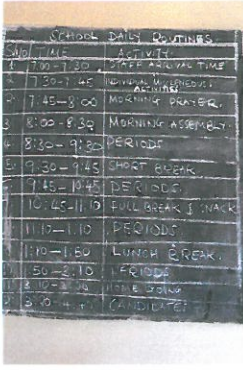 SCHOOL DAILY ROUTINES
S/No TIME ACTIVITY
7:00-7:30 STAFF ARRIVAL TIME
7:30-7:45 INDIVIDUAL
ACTIVITIES
7:45-8:00 MORNING PRAYER.
3 8:00-8:30 MORNING ASSEMBLY.
4 8:30-9:30 PERIODS
5 9:30-9:45 SHORT BREAK.
9:45-10:45 PERIODS.
10:45-11.10 FULL BREAK & SNACK
11.10-1.10 PERIODS
LUNCH BREAK.
PERIODS
HOME GOING
CANDIDATES